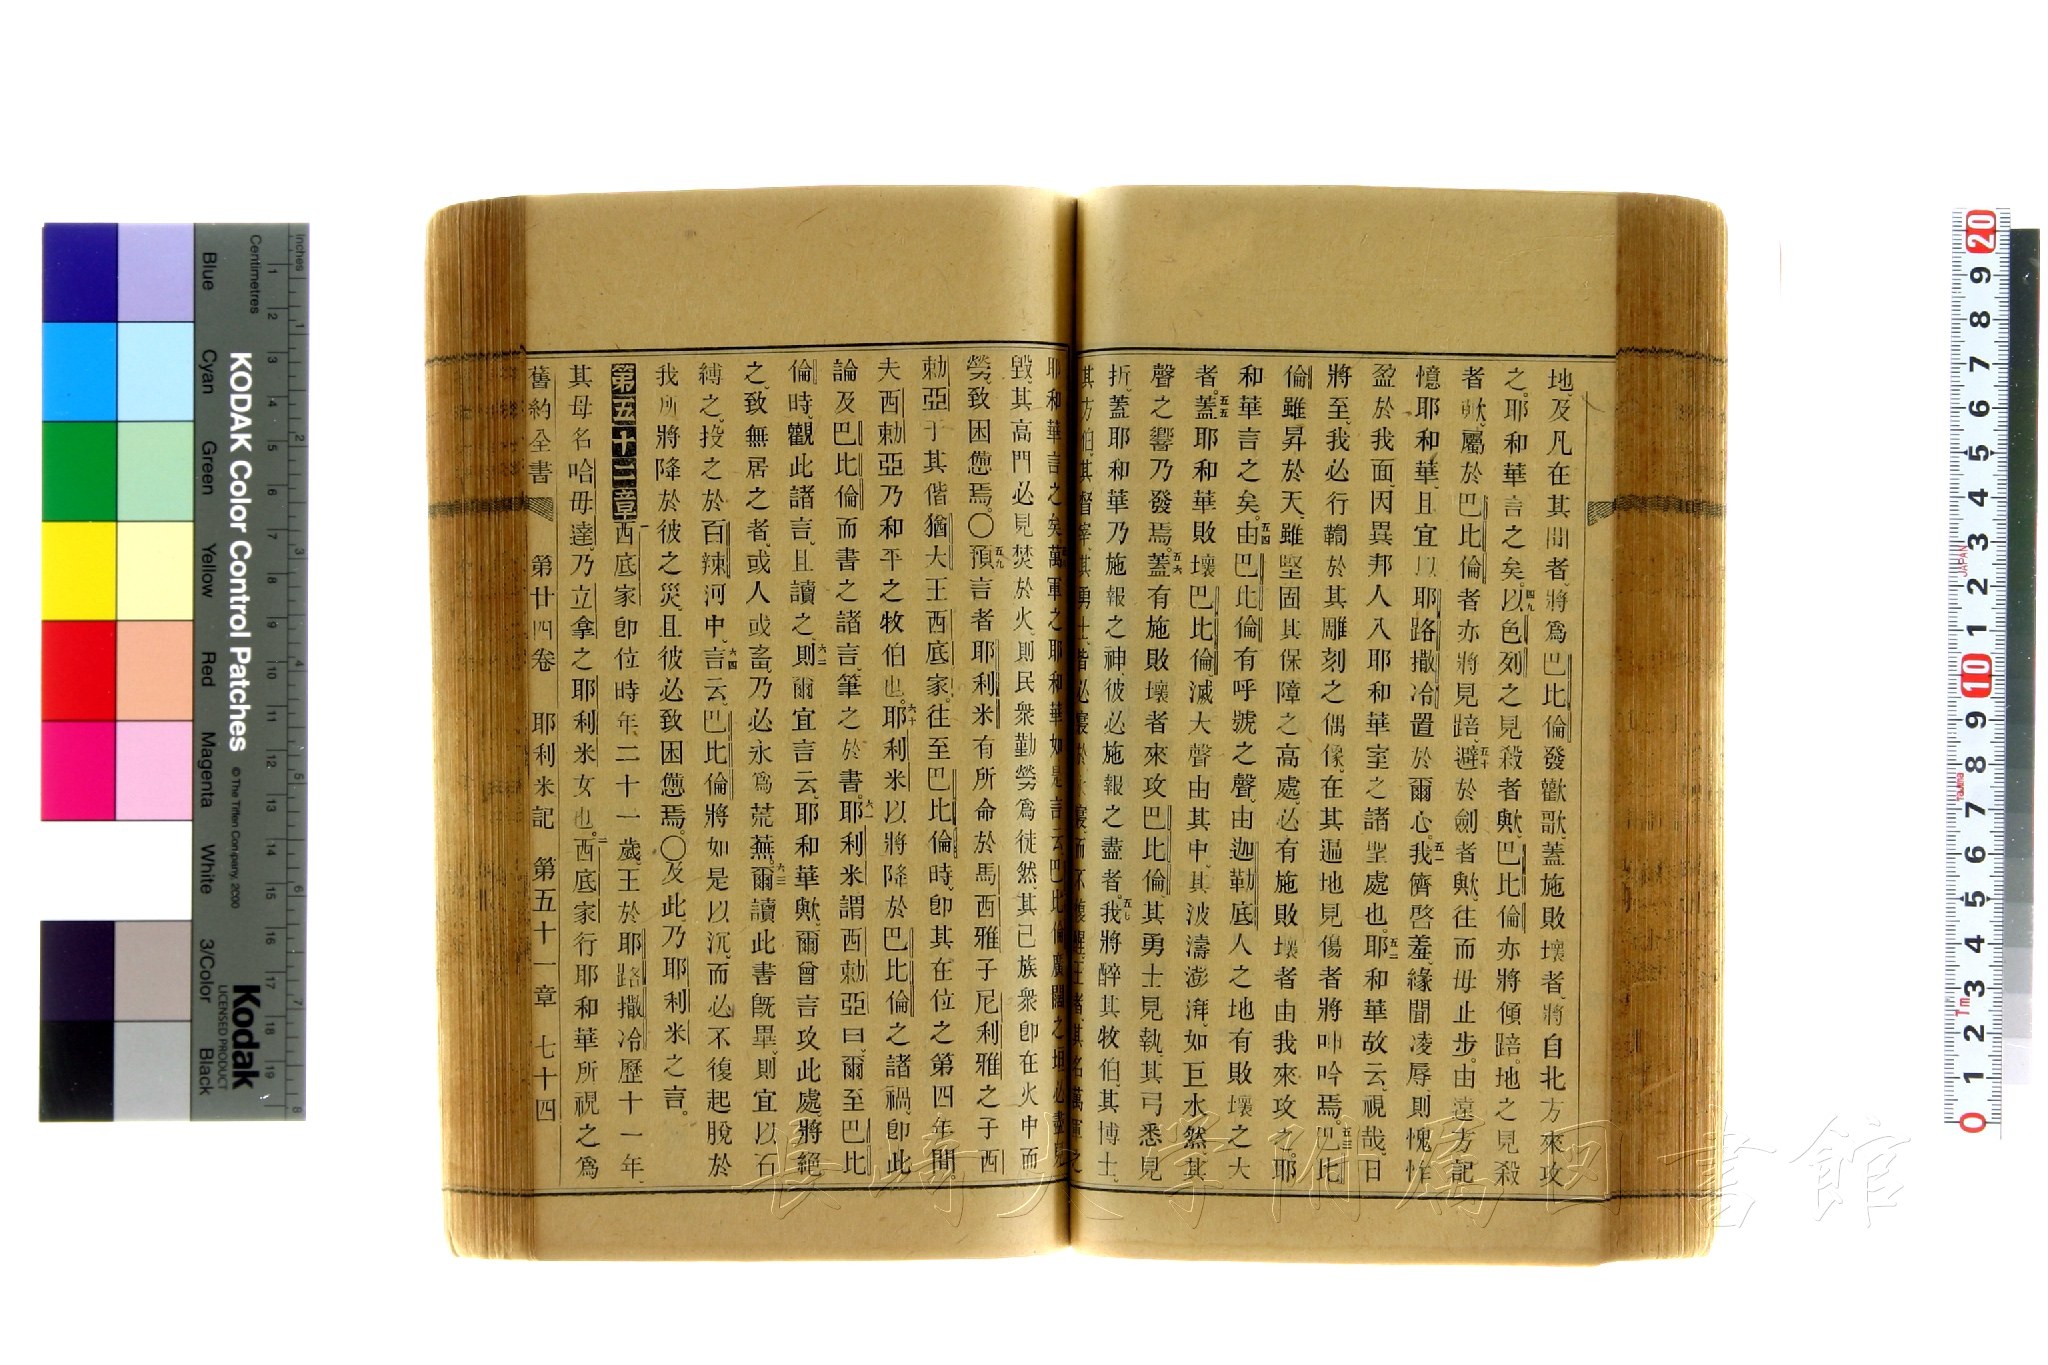 地、及凡在其間者、將爲巴比倫發歡歌、蓋施敗壞者、將自北方來攻
之、耶和華言之矣。四九以色列之見殺者歟、巴比倫亦將傾踣。地之見殺
者歟、屬於巴比倫者亦將見踣。五十避於劍者歟、往而毋止步。由遠方記
憶耶和華、且宜以耶路撒冷置於爾心。五一我儕啓羞、緣聞凌辱、則愧怍
盈於我面、因異邦人入耶和華室之諸聖處也。五二耶和華故云、視哉、日
將至、我必行鞫於其雕刻之偶像、在其遍地見傷者將呻吟焉。五三巴比
倫雖昇於天、雖堅固其保障之高處、必有施敗壞者由我來攻之。耶
和華言之矣。五四由巴比倫有呼號之聲、由迦勒底人之地有敗壞之大
者。五五蓋耶和華敗壞巴比倫、滅大聲由其中、其波濤澎湃、如巨水然、其
聲之響乃發焉。五六蓋有施敗壞者來攻巴比倫、其勇士見執、其弓悉見
折、蓋耶和華乃施報之神、彼必施報之盡者。五七我將醉其牧伯、其博士、
其方伯、其督宰、其勇士、皆必寢於永寢、而不復醒、王者、其名萬軍之
耶和華言之矣萬軍之耶和華如是言云巴比倫廣闊之垣必盡見
毀、其高門必見焚於火、則民衆勤勞爲徒然、其己族衆卽在火中而
勞、致困憊焉。〇五九預言者耶利米有所命於馬西雅子尼利雅之子西
勅亞于其偕猶大王西底家、往至巴比倫時、卽其在位之第四年間。
夫西勅亞乃和平之牧伯也。六十耶利米以將降於巴比倫之諸禍、卽此
論及巴比倫而書之諸言、筆之於書。六一耶利米謂西勅亞曰、爾至巴比
倫時、觀此諸言、且讀之、六二則爾宜言云、耶和華歟、爾曾言攻此處、將絕
之、致無居之者、或人或畜、乃必永爲荒蕪。六三爾讀此書旣畢、則宜以石
縛之、投之於百辣河中、六四言云、巴比倫將如是以沉、而必不復起脫於
我所將降於彼之災、且彼必致困憊焉。〇及此乃耶利米之言。
第五十二章一西底家卽位時年、二十一歲、王於耶路撒冷歷十一年、
其母名哈毋達、乃立拿之耶利米女也。二西底家行耶和華所視之爲
舊約全書 第廿四卷 耶利米記 第五十一章 七十四
長崎大学附属図書館
KODAK Color Control Patches
©The Tiffen Company, 2000
Kodak
LICENSED PRODUCT
Inches
Centimetres
Blue
Cyan
Green
Yellow
Red
Magenta
White
3/Color
Black
1 2 3 4 5 6 7 8 9 10 11 12 13 14 15 16 17 18 19
1 2 3 4 5 6 7 8
20 9 8 7 6 5 4 3 2 1 10 9 8 7 6 5 4 3 2 1 0
JAPAN
Tajima